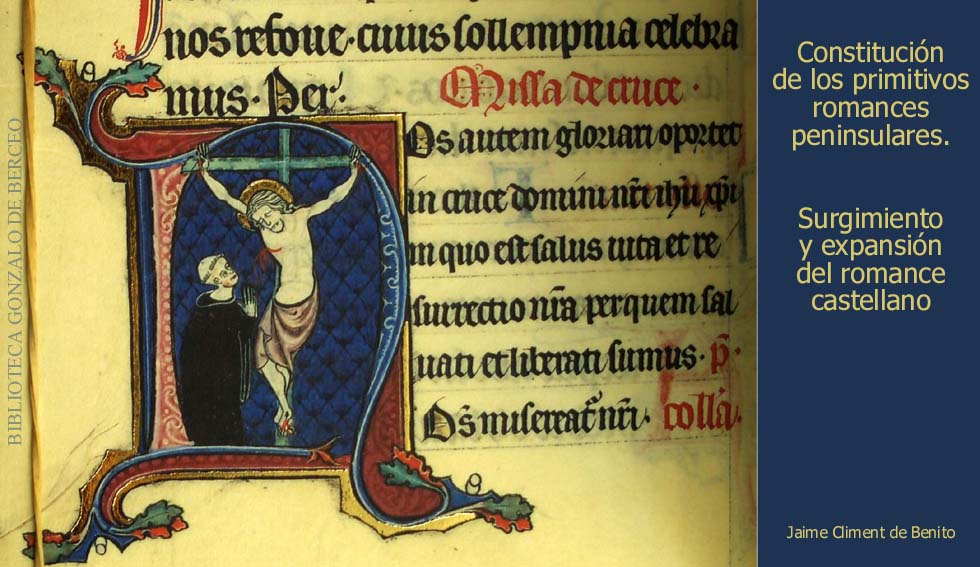 BIBLIOTECA GONZALO DE BERCEO
nos refoue. cuius sollempnia celebra
mus. Per.
Missa de cruce.
Os autem gloriari oportet
in cruce domini nr̄i ihū xp̄i
in quo est salus uita et re
surrectio nr̄a per quem sal
uati et liberati sumus. p̄.
Ds̄ misereat᷑ nr̄i. coll̄a.
Constitución
de los primitivos
romances
peninsulares.
Surgimiento
y expansión
del romance
castellano
Jaime Climent de Benito